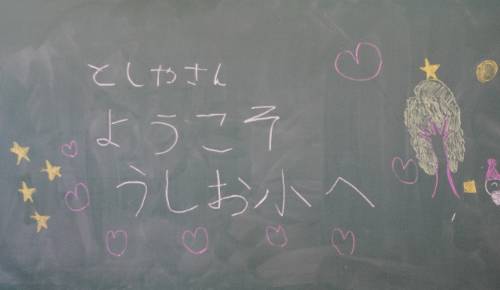 としやさん
ようこそ
うしお小へ